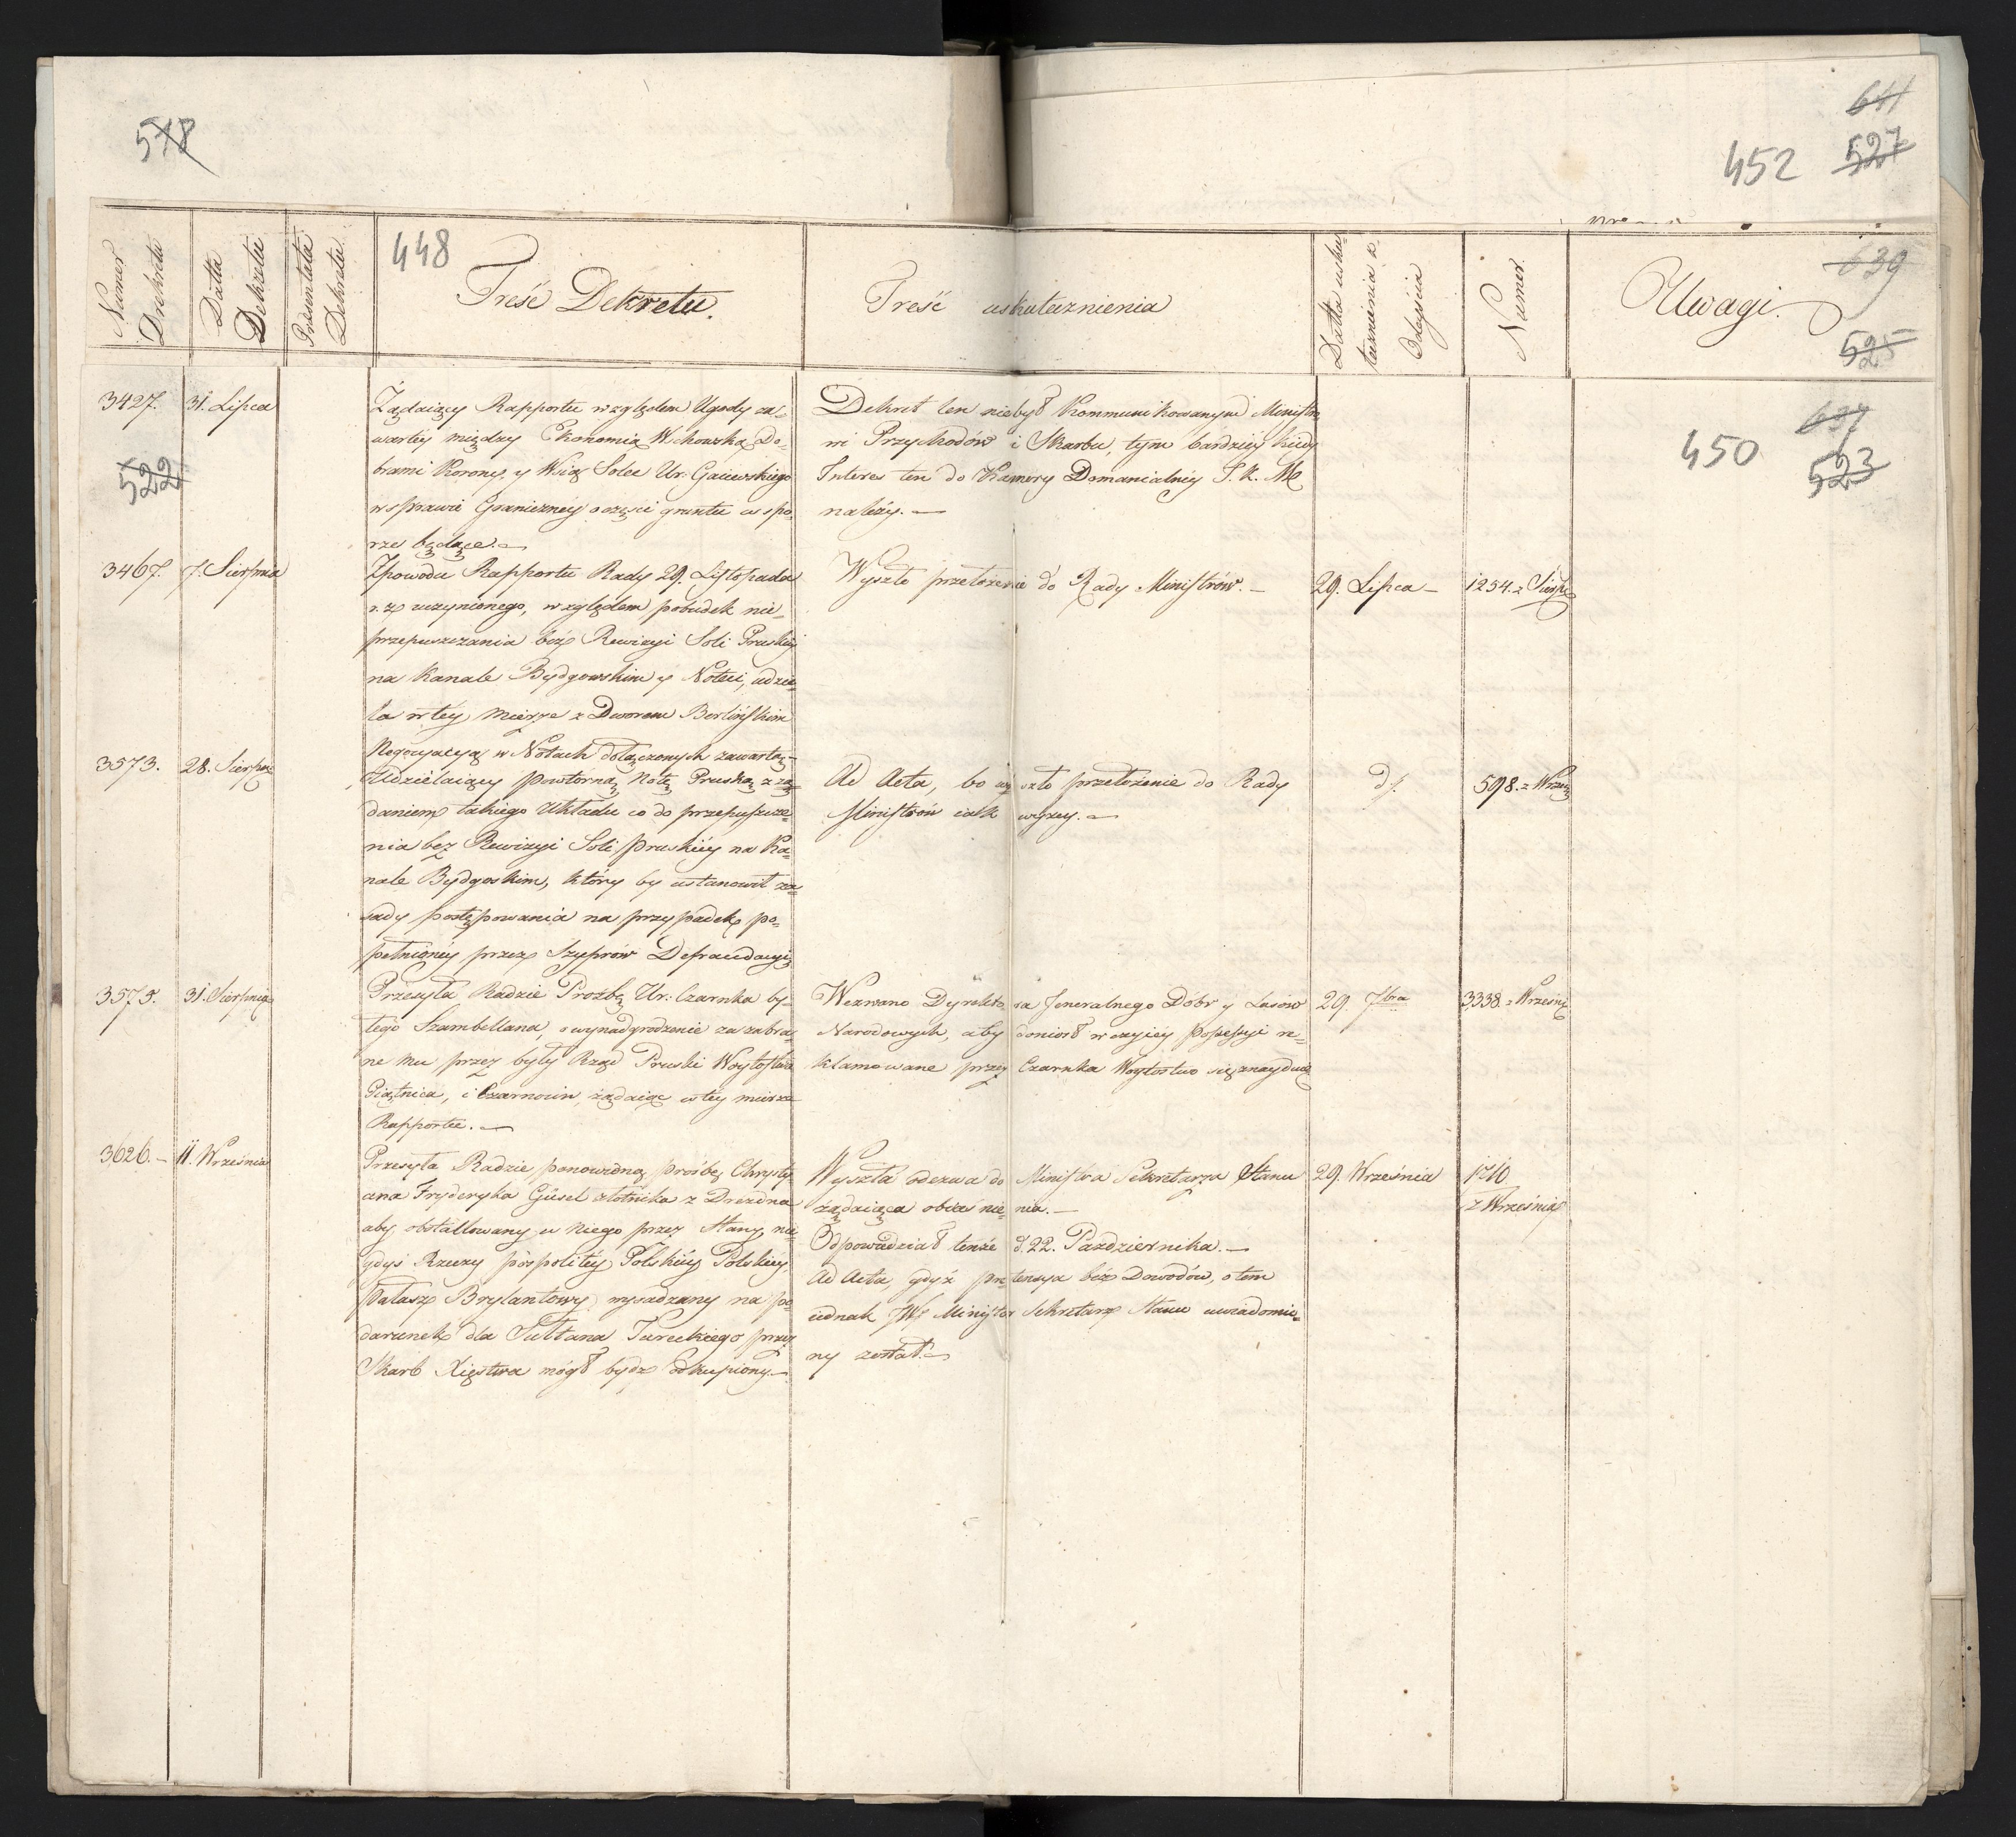 518
641
452 527
448
639
525
Numer Dekretu
Datta Dekretu
Prezentata Dekretu
Treść Dekretu.
Treść uskutecznienia
Datta usku-
tecznienia z
Odeyścia
Numer.
Uwagi.
637
450
523
522
3427. 31. Lipca
Żądaiący Rapportu względem Ugody za-
wartey między Ekonomią Wschowską Do-
brami Korony, y Wsią Solec Ur: Gaiewskiego
w sprawie Graniczney o części gruntu w spo-
rze będące.
Dekret ten niebył Kommunikowanym Ministro-
wi Przychodów i Skarbu, tym bardziey kiedy
Interes ten do Kamery Domanialney J. K. M.
należy. —
3467. 7. Sierpnia
Zpowodu Rapportu Rady 29. Listopada
r. z. uczynionego, względem pobudek nie-
przepuszczania bez Rewizyi Soli Pruskiey
na Kanale Bydgowskim y Noteci, udzie-
la w tey mierze z Dworem Berlińskim
Negocyacyą w Notach dołączonych zawartą.
Wyszło przełożenie do Rady Ministrów. —
29. Lipca —
1254. z Sierp.
3573. 28. Sierpn.
Udzielaiący powtorną Notę Pruską z żą-
daniem takiego Układu co do przepuszcze-
nia bez Rewizyi Soli pruskiey na Ka-
nale Bydgoskim, który by ustanowił za-
sady postępowania na przypadek po-
pełnioney przez Szyprów Defraudacyi
Ad Acta, bo wyszło przełożenie do Rady
Ministrów iak wyżey. —
d.
598. z Wrześ.
3575. 31. Sierpnia
Przesyła Radzie Prozbę Ur: Czarnka by-
łego Szambellana, o wynadgrodzenie za zabra-
ne mu przez były Rząd Pruski Woytostwa
Piątnica, i Czarnocin, żądaiąc w tey mierze
Rapportu. —
Wezwano Dyrektora Jeneralnego Dobr y Lasów
Narodowych, aby doniosł w czyiey Possessyi re-
klamowane przez Czarnka Woytostwo się znayduie
29. 7bra
3338. z Wrześni.
3626. — 11. Września
Przesyła Radzie ponowioną prośbę Chrysty-
ana Fryderyka Güsel złotnika z Drezdna
aby obstallowany u niego przez Stany nie-
gdyś Rzeczy pospolitey Polskiey Polskiey
Pałasz Brylantowy wysadzany na po-
darunek dla Sułtana Tureckiego przez
Skarb Xięstwa mógł bydź odkupiony. —
Wyszła odezwa do Ministra Sekretarza Stanu
żądaiąca obiaśnienia. —
Odpowiedział tenże d. 22. Pazdziernika. —
Ad Acta, gdyż pretensya bez Dowodów, o tem
iednak JW. Minister Sekretarz Stanu uwiadomio-
ny został. —
29. Września
z Września